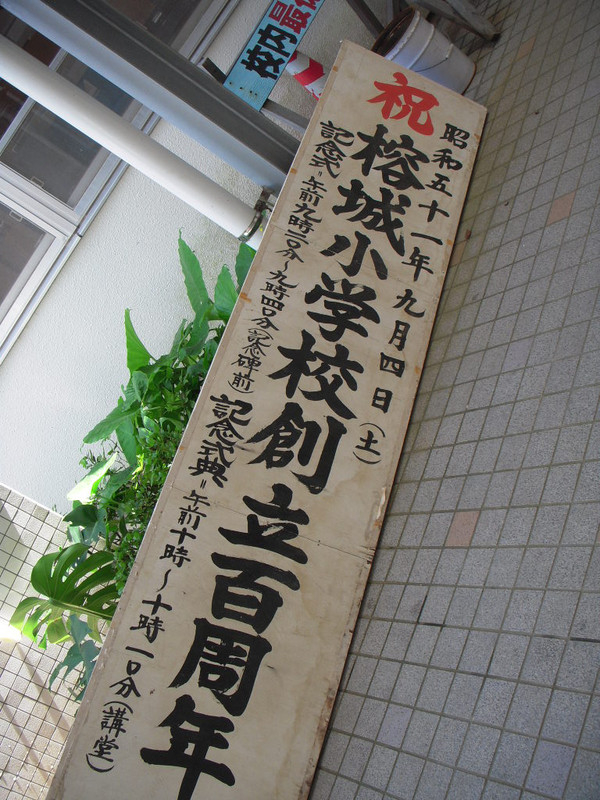 祝
昭和五十一年九月四日(土)
榕城小学校創立百周年
記念式=午前九時二〇分~九時四〇分(記念碑前)
記念式典=午前十時~十時一〇分(講堂)
校内最